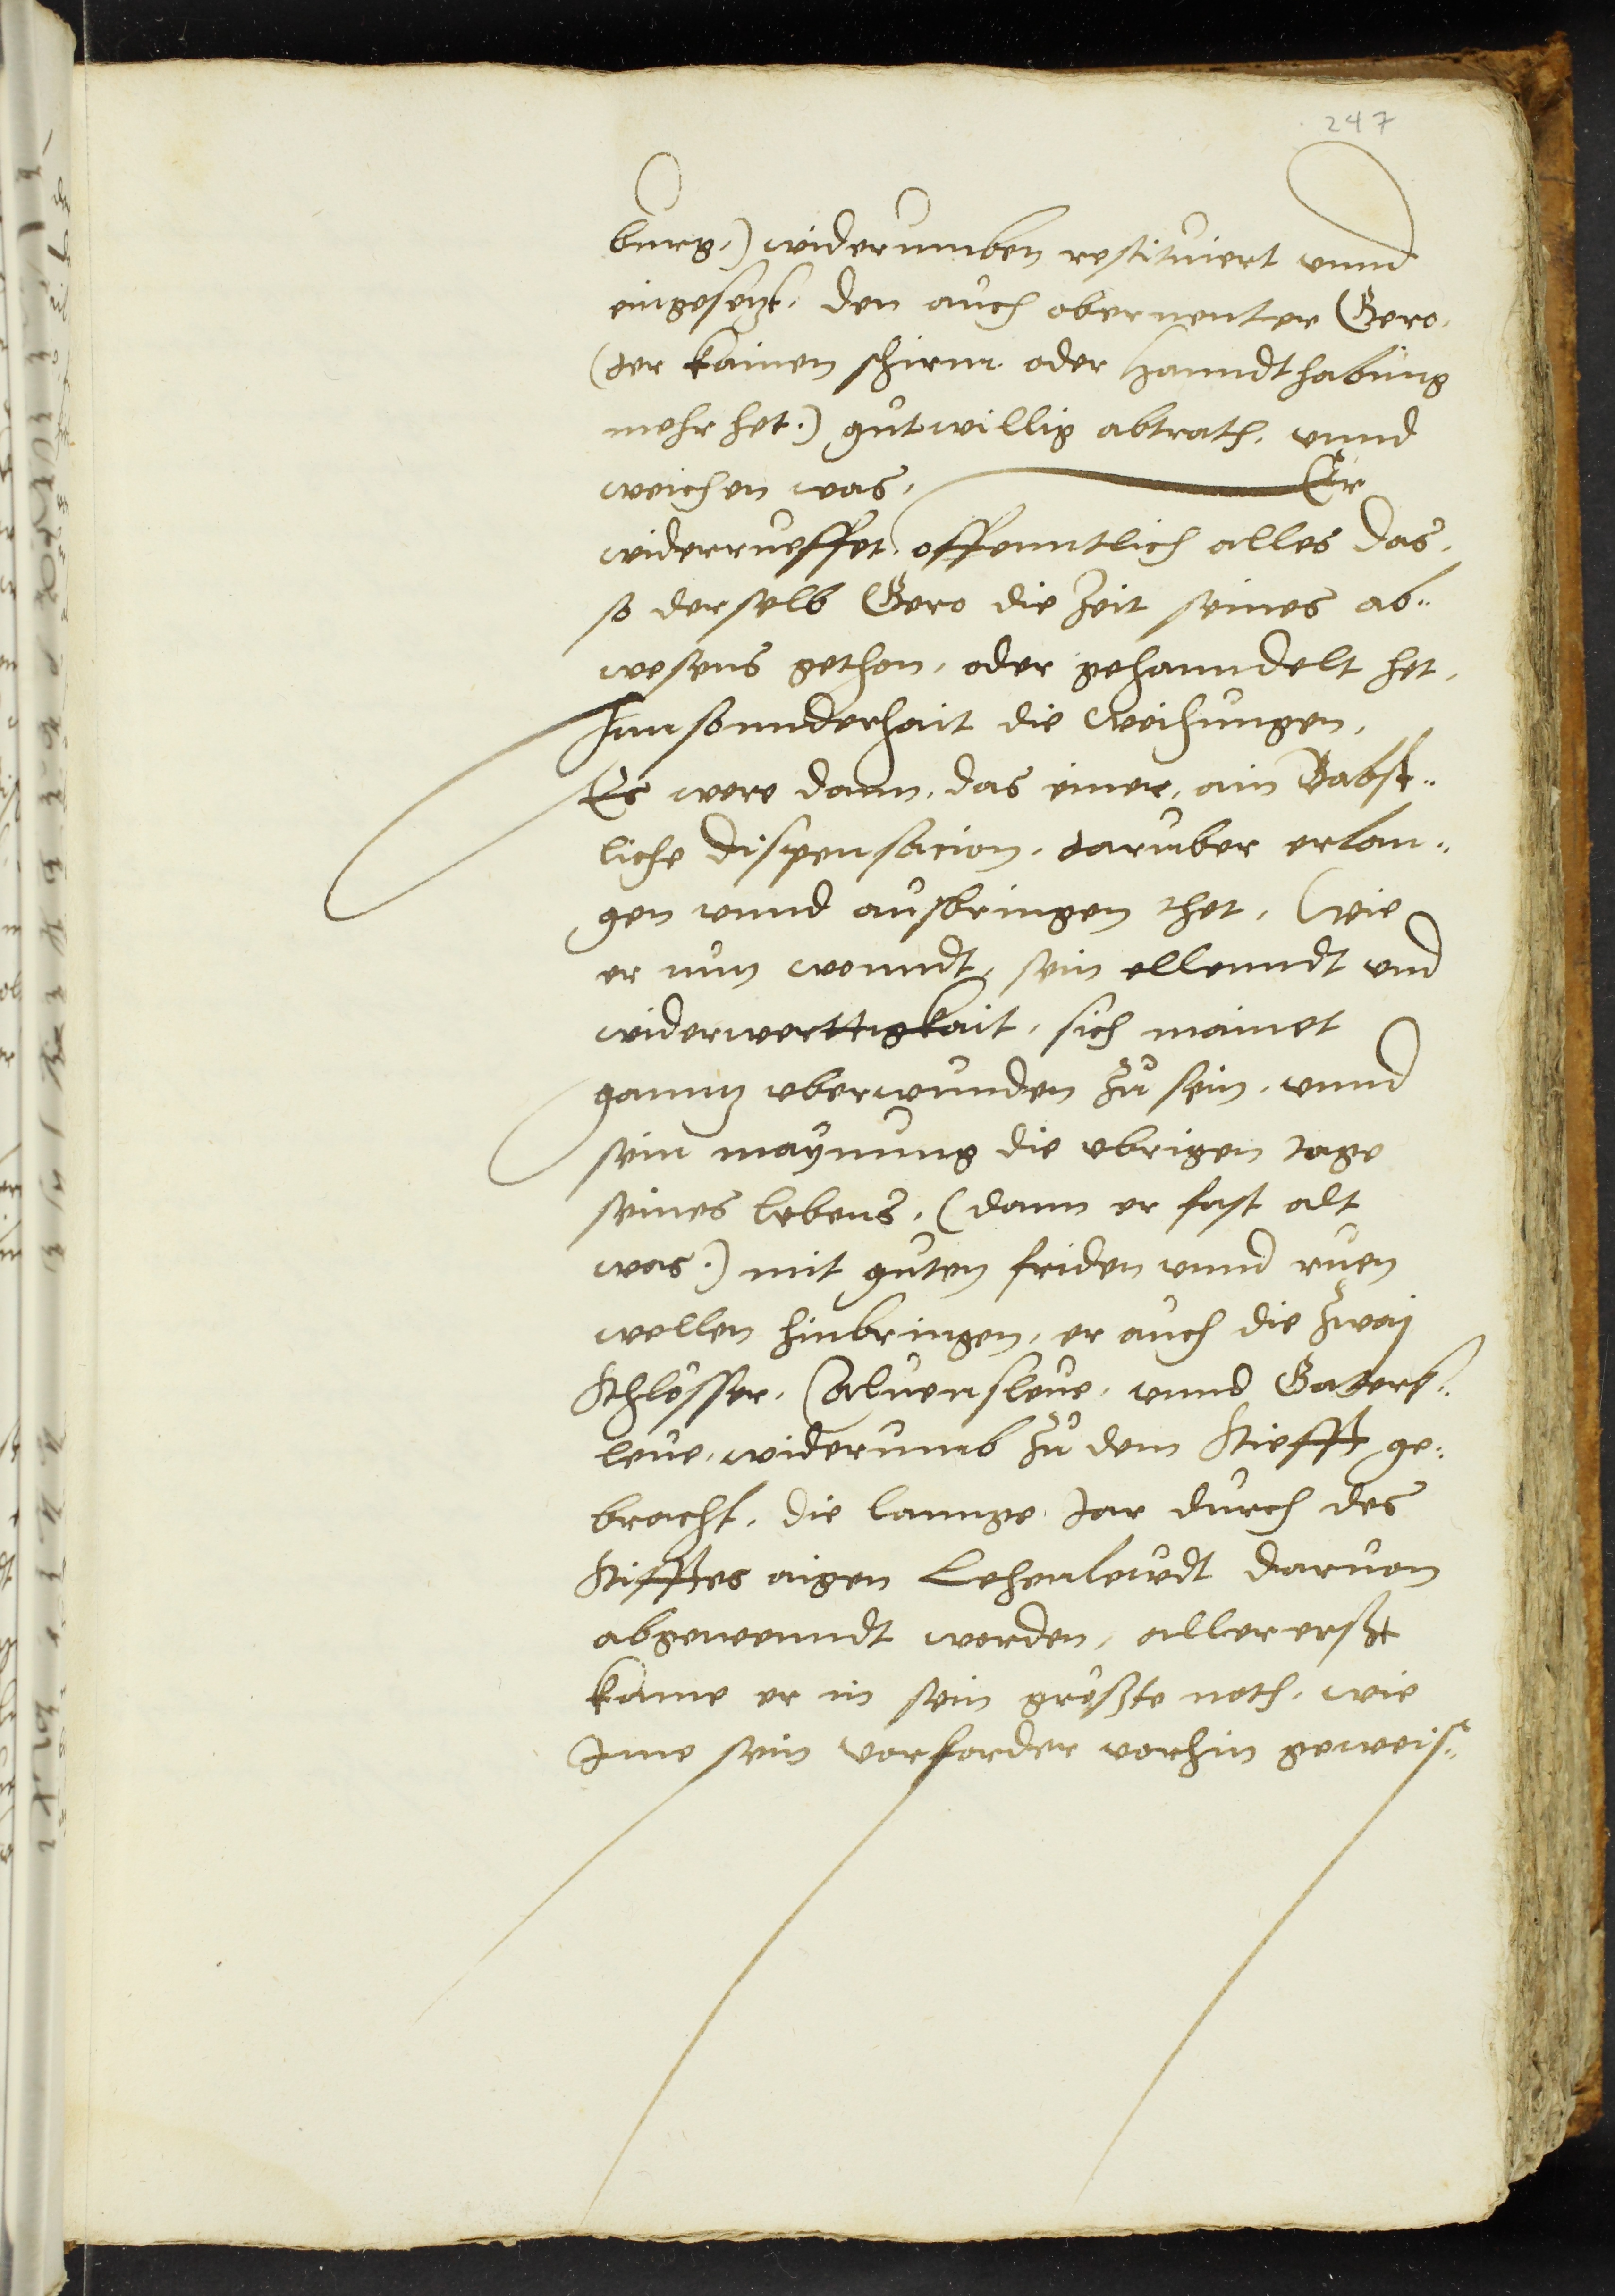 247
burg,) widerumben restituiert vnnd
eingesetzt, den auch obernenter Gero,
(der kainen schirm oder Hanndthabung
mehr het.) gutwillig abtrath, vnnd
weichen was, Er
widerrueffet, offenntlich alles das,
so derselb Gero die Zeit seines ab„
wesens gethon, oder gehanndelt het,
Inn sonnderhait die Weihungen,
Es were dann, das einer, ain Babst„
liche dispensacion, daruber erlan„
gen vnnd ausbringen thet, Wie
er nun wenndt, sein ellenndt vnd
widerwerttigkait, sich mainet
ganntz vberwunden zu sein, vnnd
sein maynung die vbrigen tage
seines lebens, (dann er fast alt
was.) mit guten friden vnnd ruen
wellen hinbringen, er auch die zwaj
Schlösser, Aluensleue, vnnd Gaters„
leue, widerumb zu dem Stiefft ge„
bracht, die lannge Jar durch des
Stifftes aigen Lehenleudt daruon
abgewenndt worden, allererst
kame er in sein gröste noth, wie
Ime sein vorforder vorhin geweis„